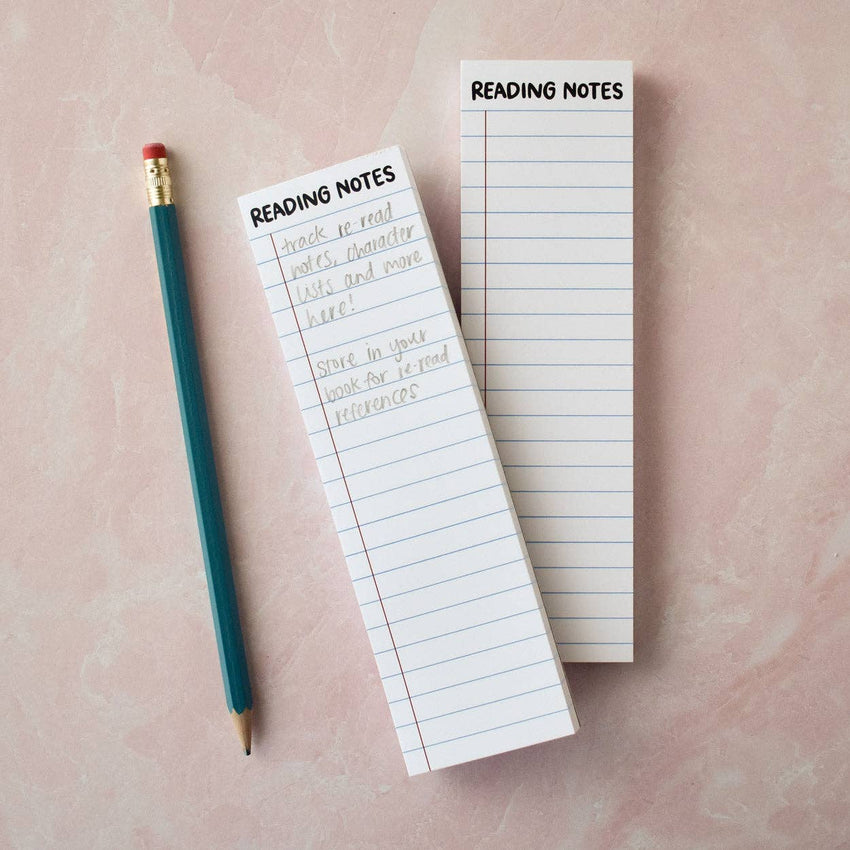 READING NOTES
track re-read
notes, character
lists and more
here!
store in your
book for re-read
references
READING NOTES